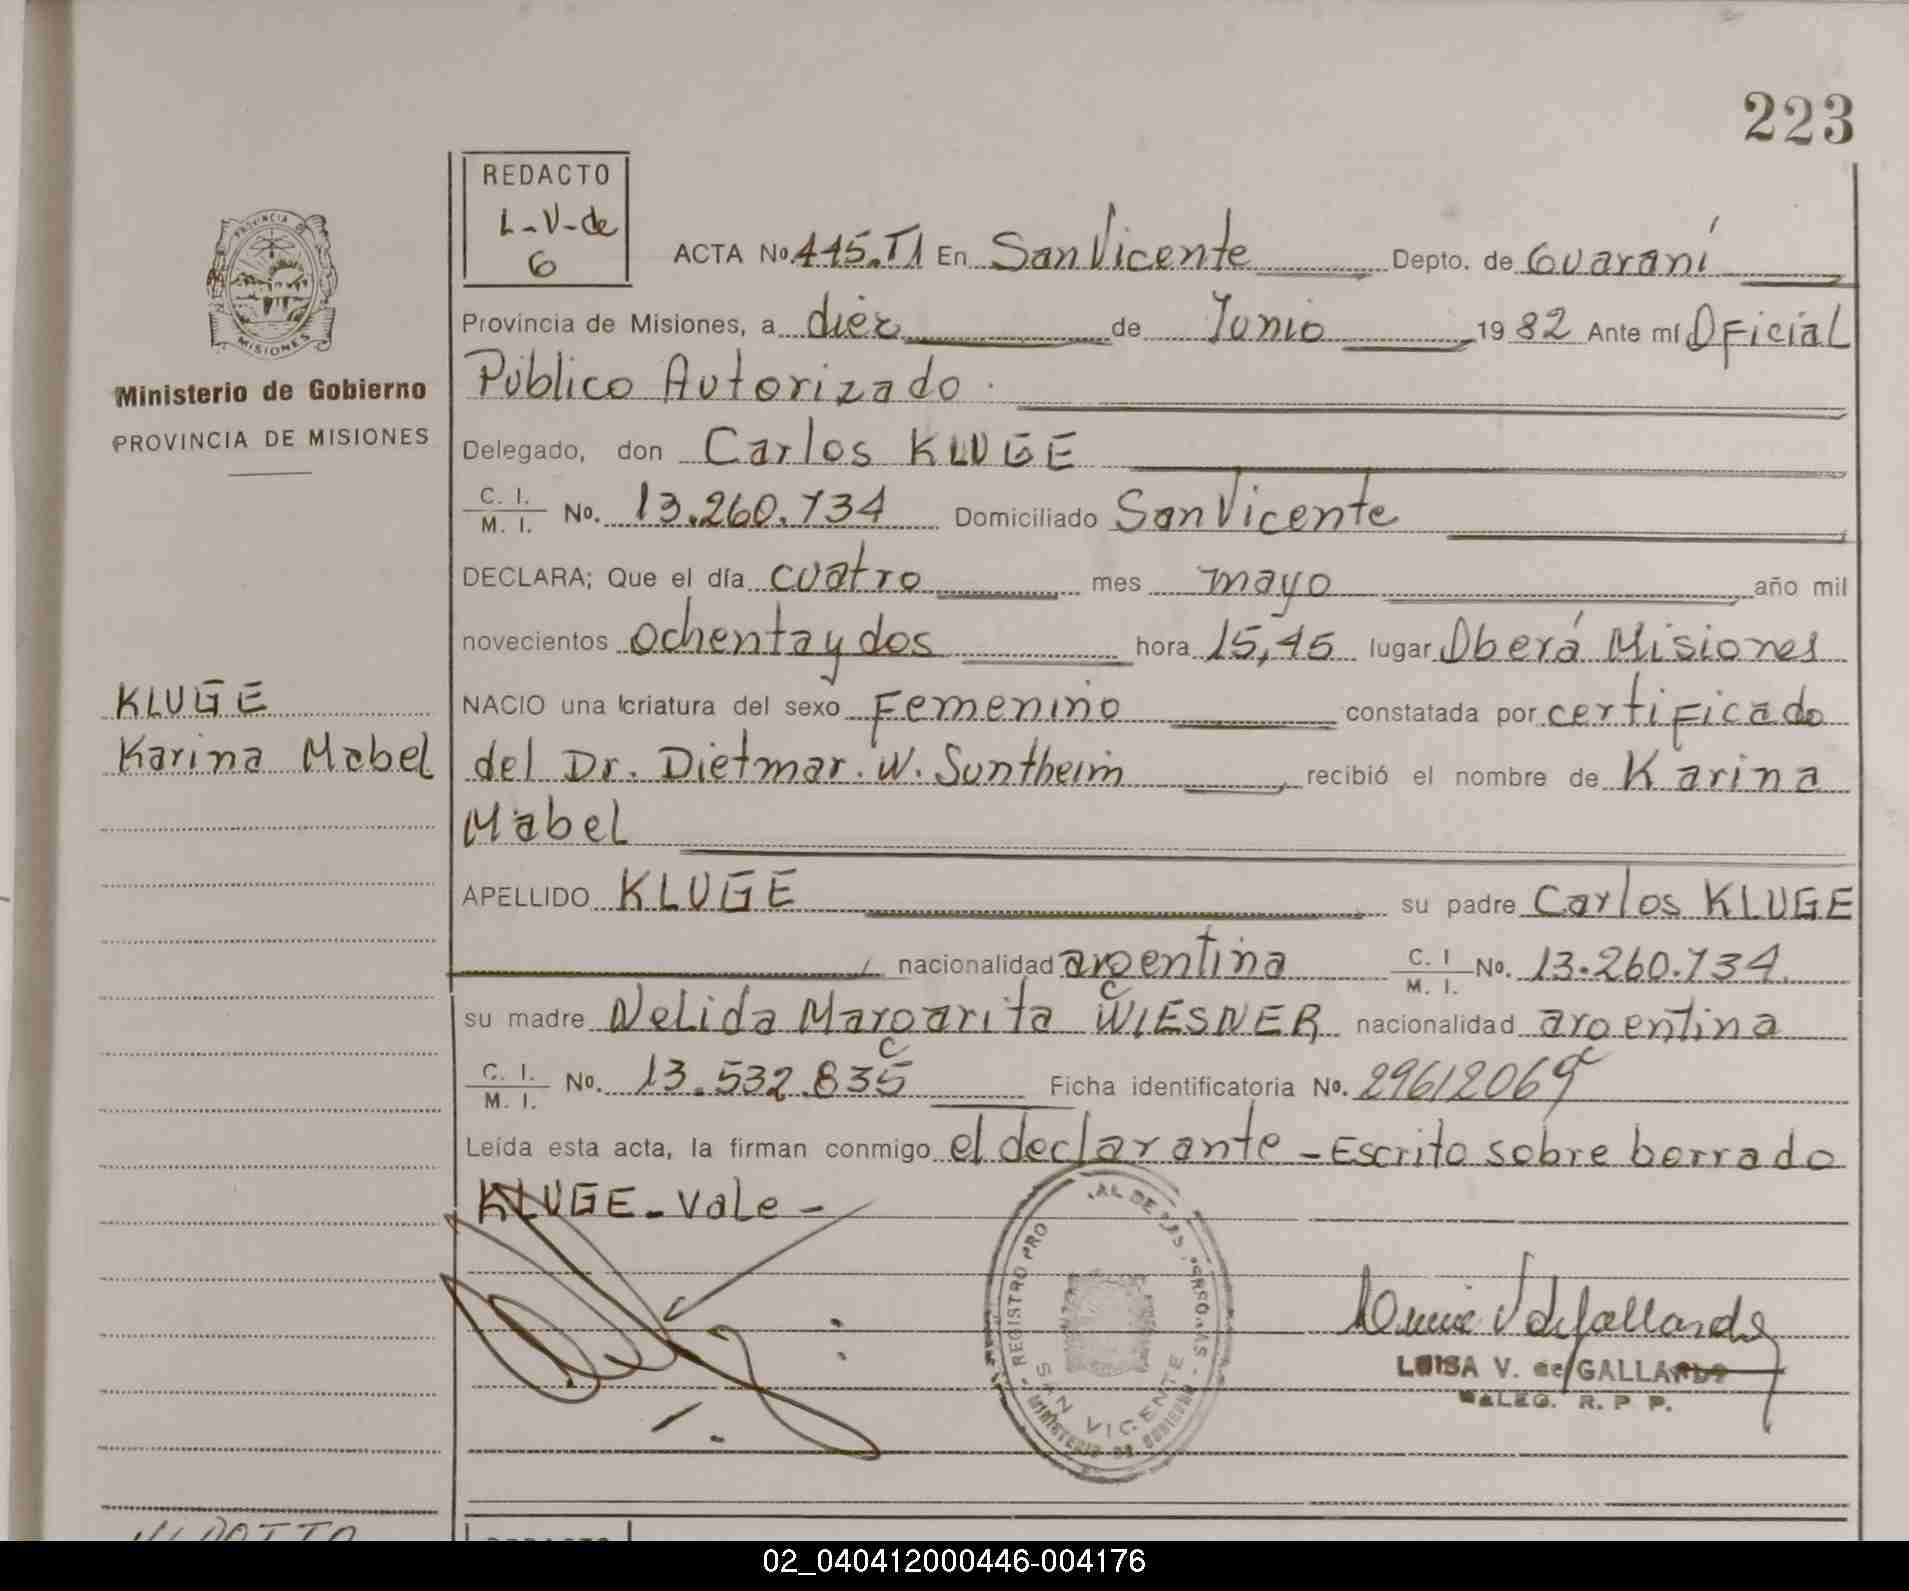 223
REDACTO
L-V-de
G
PROVINCIA DE
MISIONES
Ministerio de Gobierno
PROVINCIA DE MISIONES
ACTA No 445.T1 En San Vicente Depto. de Guaraní
Provincia de Misiones, a diez de Junio 1982 Ante mí Oficial
Público Autorizado.
Delegado, don Carlos KLUGE
C. I. / M. I. No. 13.260.734 Domiciliado San Vicente
DECLARA; Que el día cuatro mes mayo año mil
novecientos ochenta y dos hora 15,45 lugar Oberá Misiones
KLUGE
NACIO una criatura del sexo Femenino constatada por certificado
Karina Mabel
del Dr. Dietmar. W. Suntheim recibió el nombre de Karina
Mabel
APELLIDO KLUGE su padre Carlos KLUGE
nacionalidad argentina C. I / M. I. No. 13.260.734.
su madre Nelida Margarita WIESNER nacionalidad argentina
C. I. / M. I. No. 13.532.835 Ficha identificatoria No. 29612069
Leída esta acta, la firman conmigo el declarante - Escrito sobre borrado
KLUGE - Vale -
REGISTRO PRO AL DE LAS PERSONAS
SAN VICENTE
MINISTERIO DE GOBIERNO
LUISA V. de GALLARDO
DELEG. R. P P.
REDACTO
02_040412000446-004176